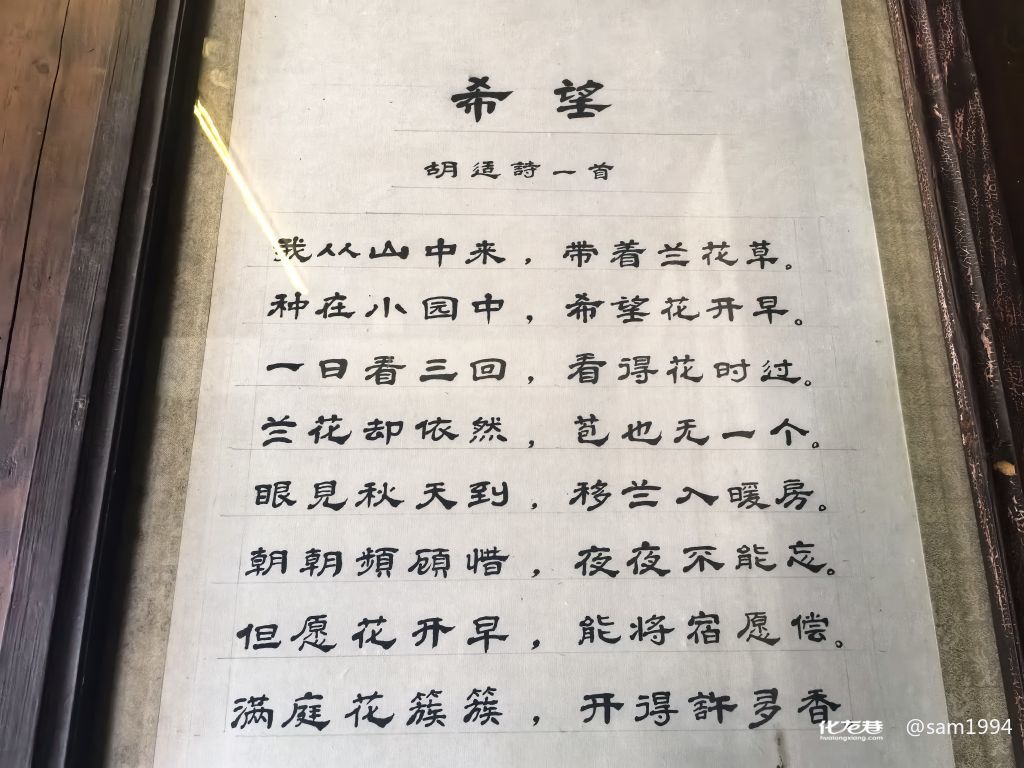 希望
胡适詩一首
我从山中来，带着兰花草。
种在小园中，希望花开早。
一日看三回，看得花时过。
兰花却依然，苞也无一个。
眼見秋天到，移兰入暖房。
朝朝頻顾惜，夜夜不能忘。
但愿花开早，能将宿愿偿。
满庭花簇簇，开得許多香
化龙巷
hualongxiang.com
@sam1994